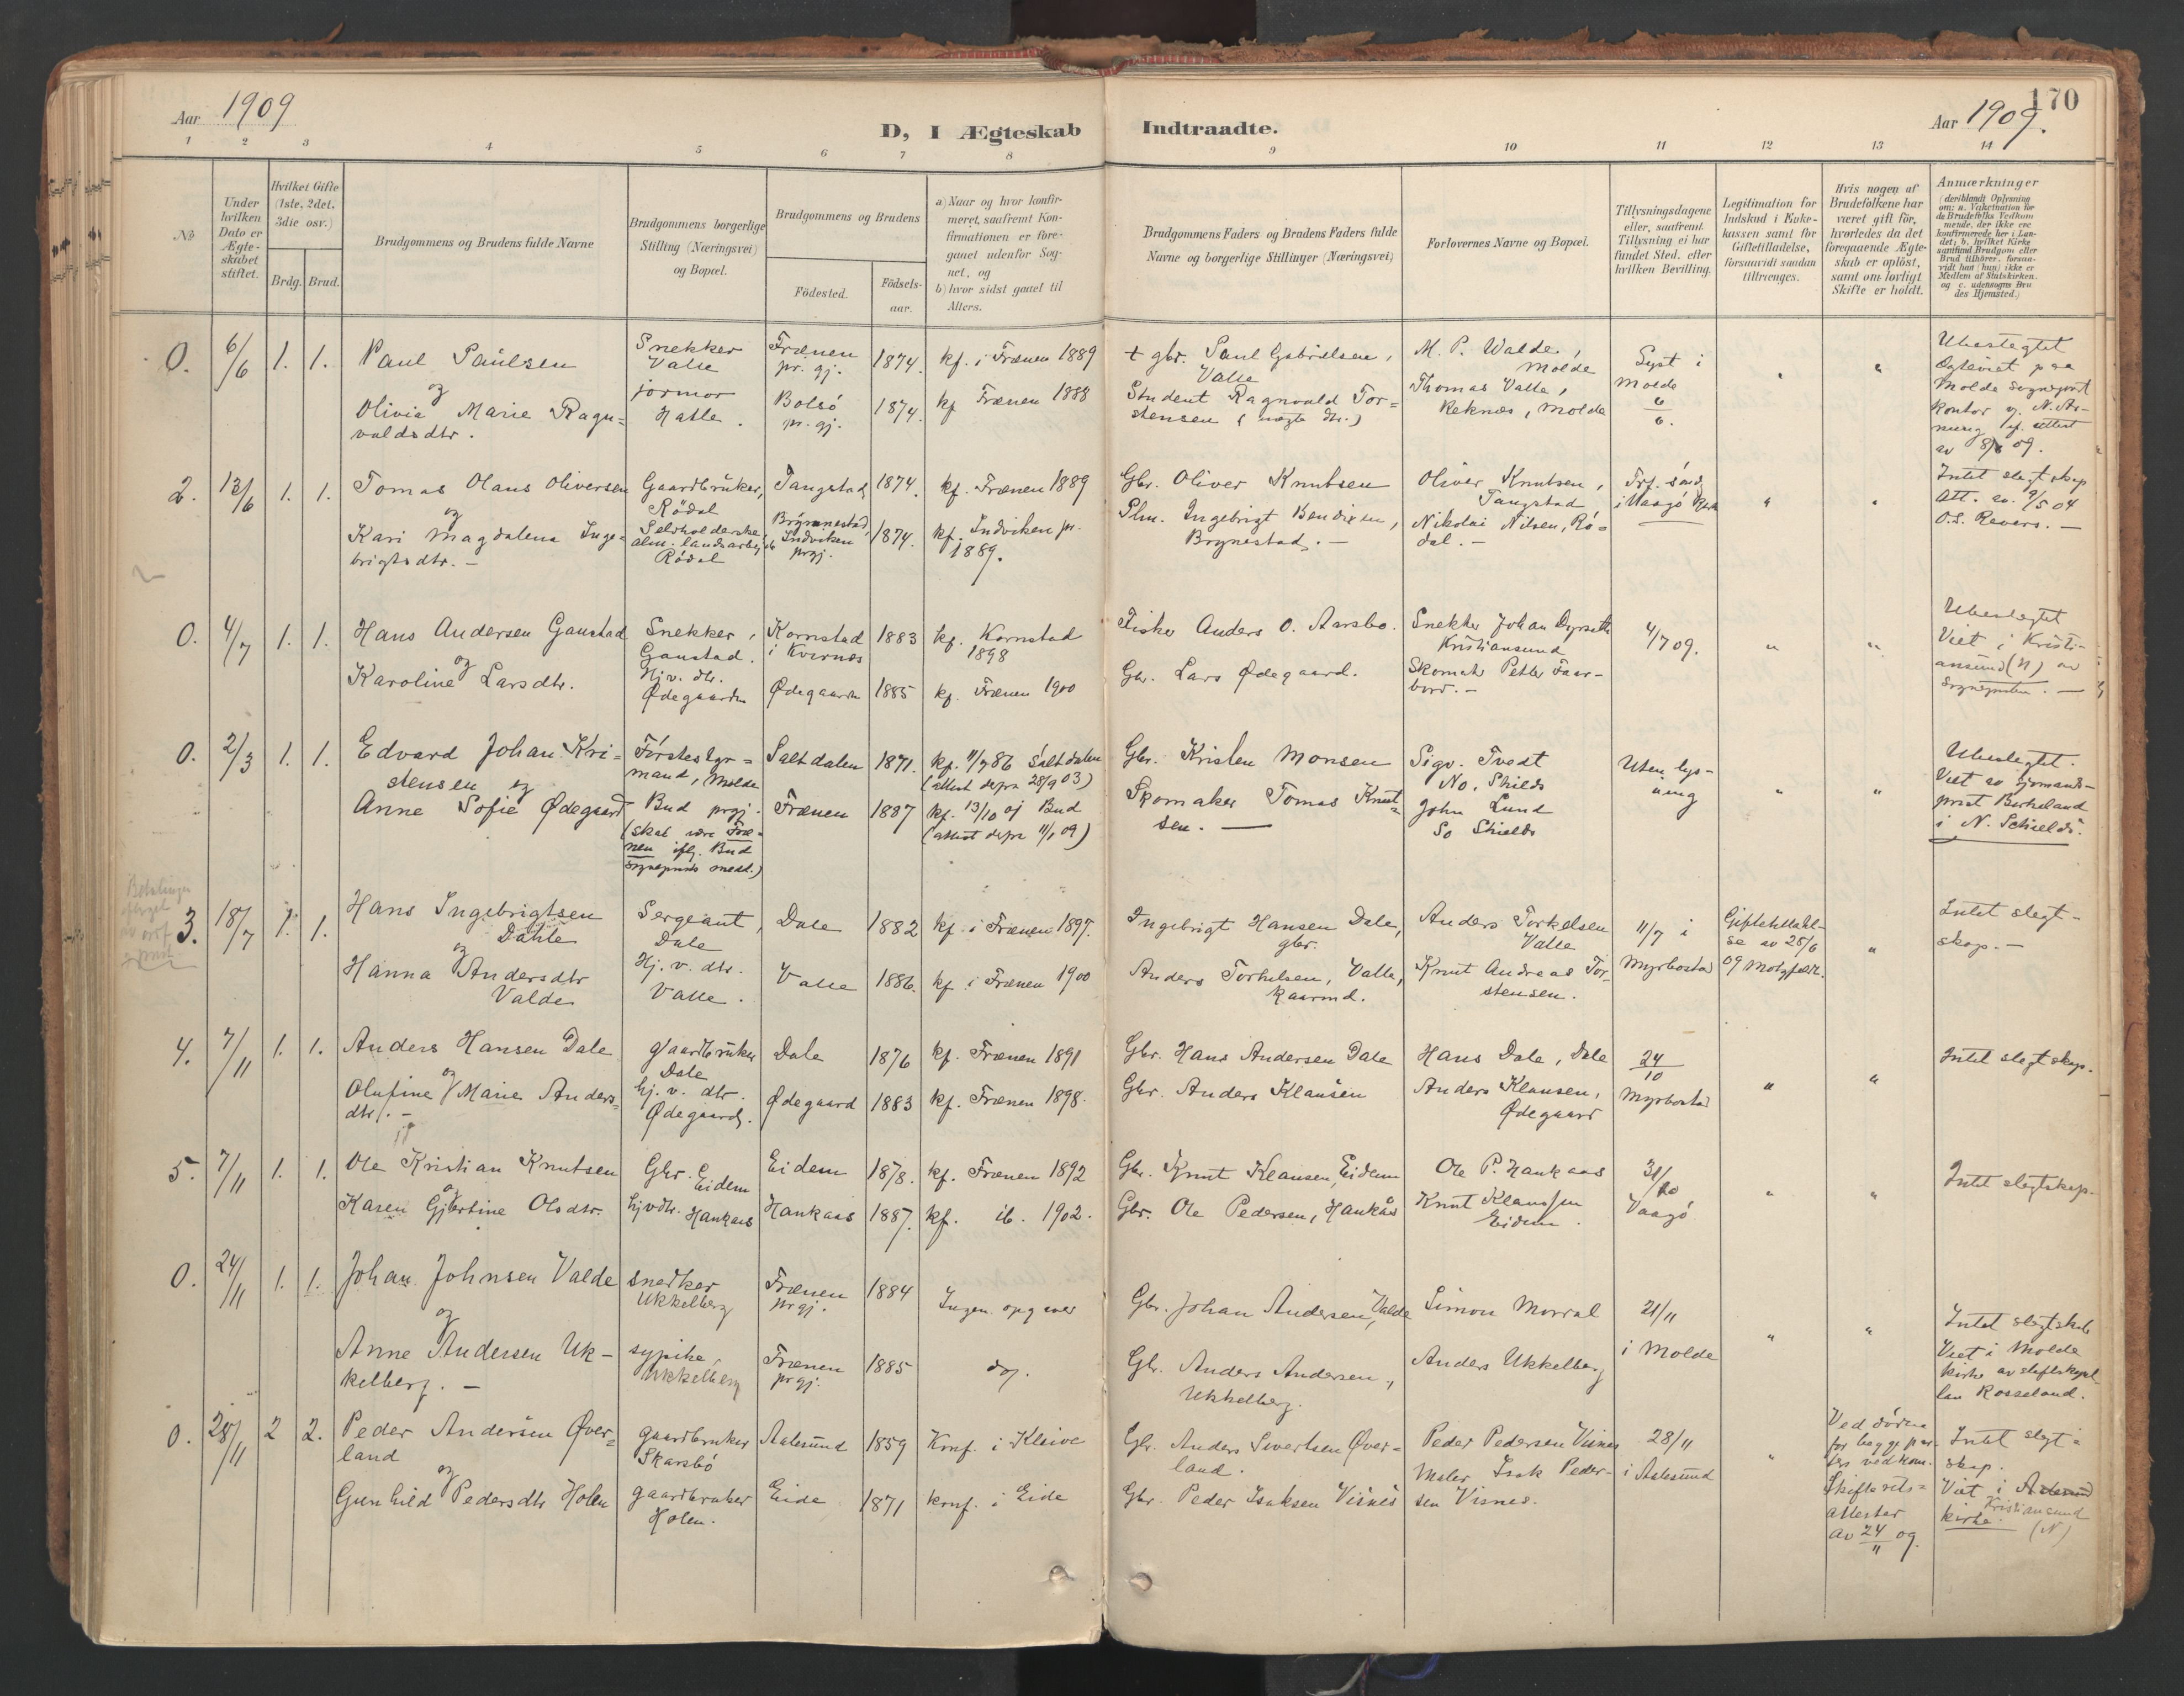 Aar 1909
D, I Ægteskab
Indtraadte.
Aar 1909.
170
1 2 3 4 5 6 7 8 9 10 11 12 13 14
No
Under hvilken Dato er Ægteskabet stiftet.
Hvilket Gifte (1ste, 2det, 3die osv.)
Brdg. Brud.
Brudgommens og Brudens fulde Navne
Brudgommens borgerlige Stilling (Næringsvei) og Bopæl.
Brudgommens og Brudens
Födested.
Födsels-aar.
a) Naar og hvor konfirmeret, saafremt Konfirmationen er foregaaet udenfor Sognet, og
b) hvor sidst gaaet til Alters.
Brudgommens Faders og Brudens Faders fulde Navne og borgerlige Stillinger (Næringsvei)
Forlovernes Navne og Bopæl.
Tillysningsdagene eller, saafremt Tillysning ei har fundet Sted, efter hvilken Bevilling.
Legitimation for Indskud i Enkekassen samt for Giftetilladelse, forsaavidt saadan tiltrænges.
Hvis nogen af Brudefolkene har været gift før, hvorledes da det foregaaende Ægteskab er oplöst, samt om lovligt Skifte er holdt.
Anmærkninger
0. 6/6 1. 1. Paul Paulsen
og
Olivia Marie Ragnvaldsdtr.
Snekker Valle
jormor Hatle.
Frænen pr. gj. 1874. kf. i Frænen 1889
Bolsö pr. gj. 1874. kf Frænen 1888
+ gbr. Paul Gabrielsen, Valle
Student Ragnvald Torstensen (uægte dtr.)
M. P. Walde, Molde
Thomas Valle, Reknes, Molde
Lyst i Molde 6/6.
Ubeslegtet
Molde
2. 13/6 1. 1. Tomas Olaus Oliversen
og
Kari Magdalena Ingebrigtsdtr. -
Gaardbruker, Rödal
Rödal
Tangstad 1874. kf. Frænen 1889
Indviken prgj. 1874. kf. Indviken pr. 1889.
Gbr. Oliver Knutsen
Plm. Ingebrigt Bendixen, Brynestad. -
Oliver Knutsen, Tangstad
Nikolai Nilsen, Rödal. -
Intet slegtskap
Att. av. 9/5 04
0. 4/7 1. 1. Hans Andersen Gaustad
og
Karoline Larsdtr.
Snekker, Gaustad.
Hj.v. dtr. Ødegaarden
Kornstad i Kvernes 1883 kf. Kornstad 1898
Ødegaarden 1885 kf. Frænen 1900
Fisker Anders O. Aarsbo.
Gbr. Lars Ødegaard.
Snekker Johan Dyrseth Kristiansund
4/7 09.
Ubeslegtet
Viet i Kristiansund (N) av
0. 2/3 1. 1. Edvard Johan Kristensen og
Anne Sofie Ødegaard
Förstestyrmand, Molde
Bud prgj.
(skal være Frænen iflg. Bud
Saltdalen 1871. kf. 11/7 86 Saltdalen
(attest depr 28/9 03)
Frænen 1887 kf. 13/10 01 Bud
(attest depr 11/1 09)
Gbr. Kristen Monsen
Skomaker Tomas Knutsen. -
Sigv. Tvedt No. Shields
John Lund So Shields
Uten lysning
Ubeslegtet.
Viet av sjømandsprest Berkeland
i N. Schields.
3. 18/7 1. 1. Hans Ingebrigtsen Dahle
og
Hanna Andersdtr Valde
Sergeant, Dale
Hj. v. dtr. Valle.
Dale 1882 kf. i Frænen 1897.
Valle 1886. kf. i Frænen 1900
Ingebrigt Hansen Dale, gbr.
Anders Torkelsen, Valle, kaarmd.
Anders Torkelsen Valle
Knut Andreas Torstensen.
11/7 i Myrbostad
Intet slegtskap. -
4. 7/11 1. 1. Anders Hansen Dale
og
Olufine Marie Andersdtr. -
gaardbruker Dale
hj. v. dtr. Ødegaard.
Dale 1876 kf. Frænen 1891
Ødegaard 1883 kf. Frænen 1898.
Gbr. Hans Andersen Dale
Gbr. Anders Klausen
Hans Dale, Dale
Anders Klausen, Ødegaard
24/10 Myrbostad
Intet slegtskap.
5. 7/11 1. 1. Ole Kristian Knutsen
og
Karen Gjertine Olsdtr.
Gbr. Eidem
hjvdtr. Haukaas
Eidem 1878. kf. Frænen 1892
Haukaas 1887. kf. ib. 1902.
Gbr. Knut Klausen, Eidem
Gbr. Ole Pedersen, Haukås
Ole P. Haukaas
Knut Klaussen Eidem.
31/10 Vaagö
Intet slegtskap.
0. 24/11 1. 1. Johan Johnsen Valde
og
Anne Andersen Ukkelberg. -
snedker Ukkelberg
sypike, Ukkelberg
Frænen prgj. 1884 Ingen opgaver
Frænen prgj. 1885
Gbr. Johan Andersen, Valde
Gbr. Anders Andersen, Ukkelberg.
Simon Morral
Anders Ukkelberg
21/11 i Molde
Intet slegtskab
Viet i Molde kirke av stiftskapellan Rosseland.
0. 28/11 2 2. Peder Andersen Øverland
og
Gunhild Pedersdtr Holen
gaardbruker Skarsbö
gaardbruker Holen.
Aalesund 1859 Konf. i Kleive
Eide 1871 konf. i Eide
Gbr. Anders Sivertsen Øverland.
Gbr. Peder Isaksen Visnes
Peder Pedersen Visnes
Maler Isak Pedersen Visnes.
28/11 i Aalesund
Ved döden for begge parters vedkom.
Skifteretsattester av 24/11 09.
Intet slegtskap.
Viet i Aalesund kirke. Kristiansund (N)